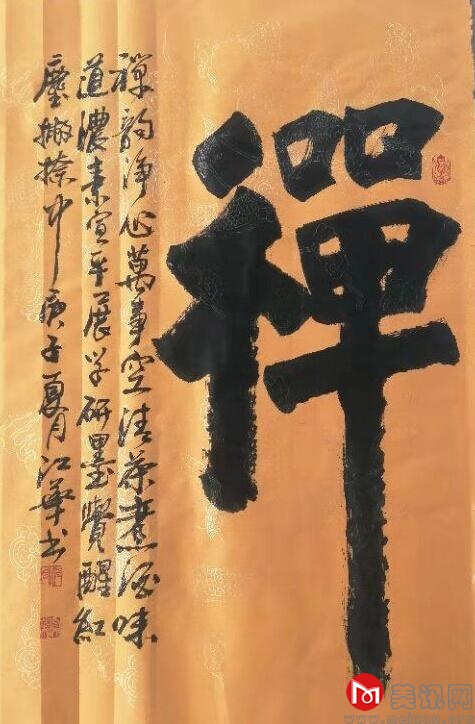 禪
禪韵淨心萬事空清茶煮酒味
道濃素宣平展学研墨覺醒紅
塵撇捺中庚子夏月江華书
美讯网